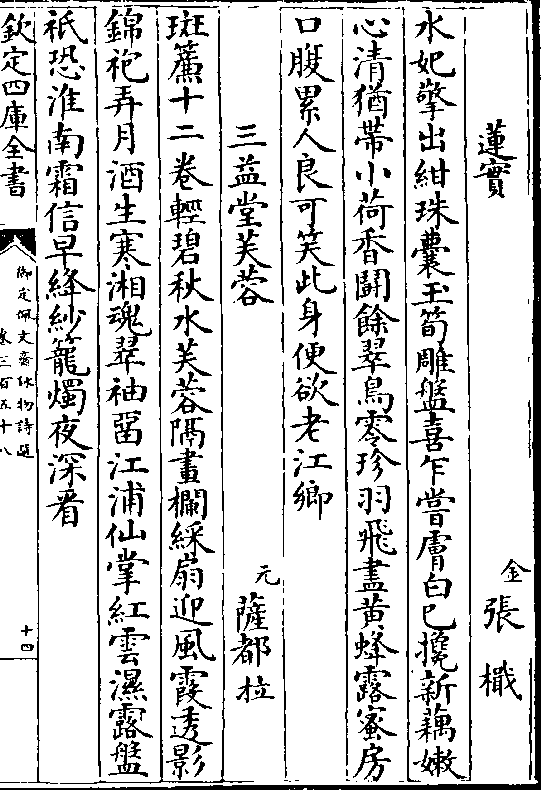 蓮實　金張檝
水妃擎出紺珠囊玉筍雕盤喜乍嘗膚白已攙新藕嫩
心清猶帶小荷香鬭餘翠鳥零珍羽飛盡黃蜂露蜜房
口腹累人良可笑此身便欲老江鄉
三益堂芙蓉　元薩都拉
斑簾十二卷輕碧秋水芙蓉隔畫欄綵扇迎風霞透影
錦袍弄月酒生寒湘魂翠袖留江浦仙掌紅雲濕露盤
祇恐淮南霜信早絳紗籠燭夜深看
欽定四庫全書
御定佩文齋詠物詩選
卷三百五十八
十四